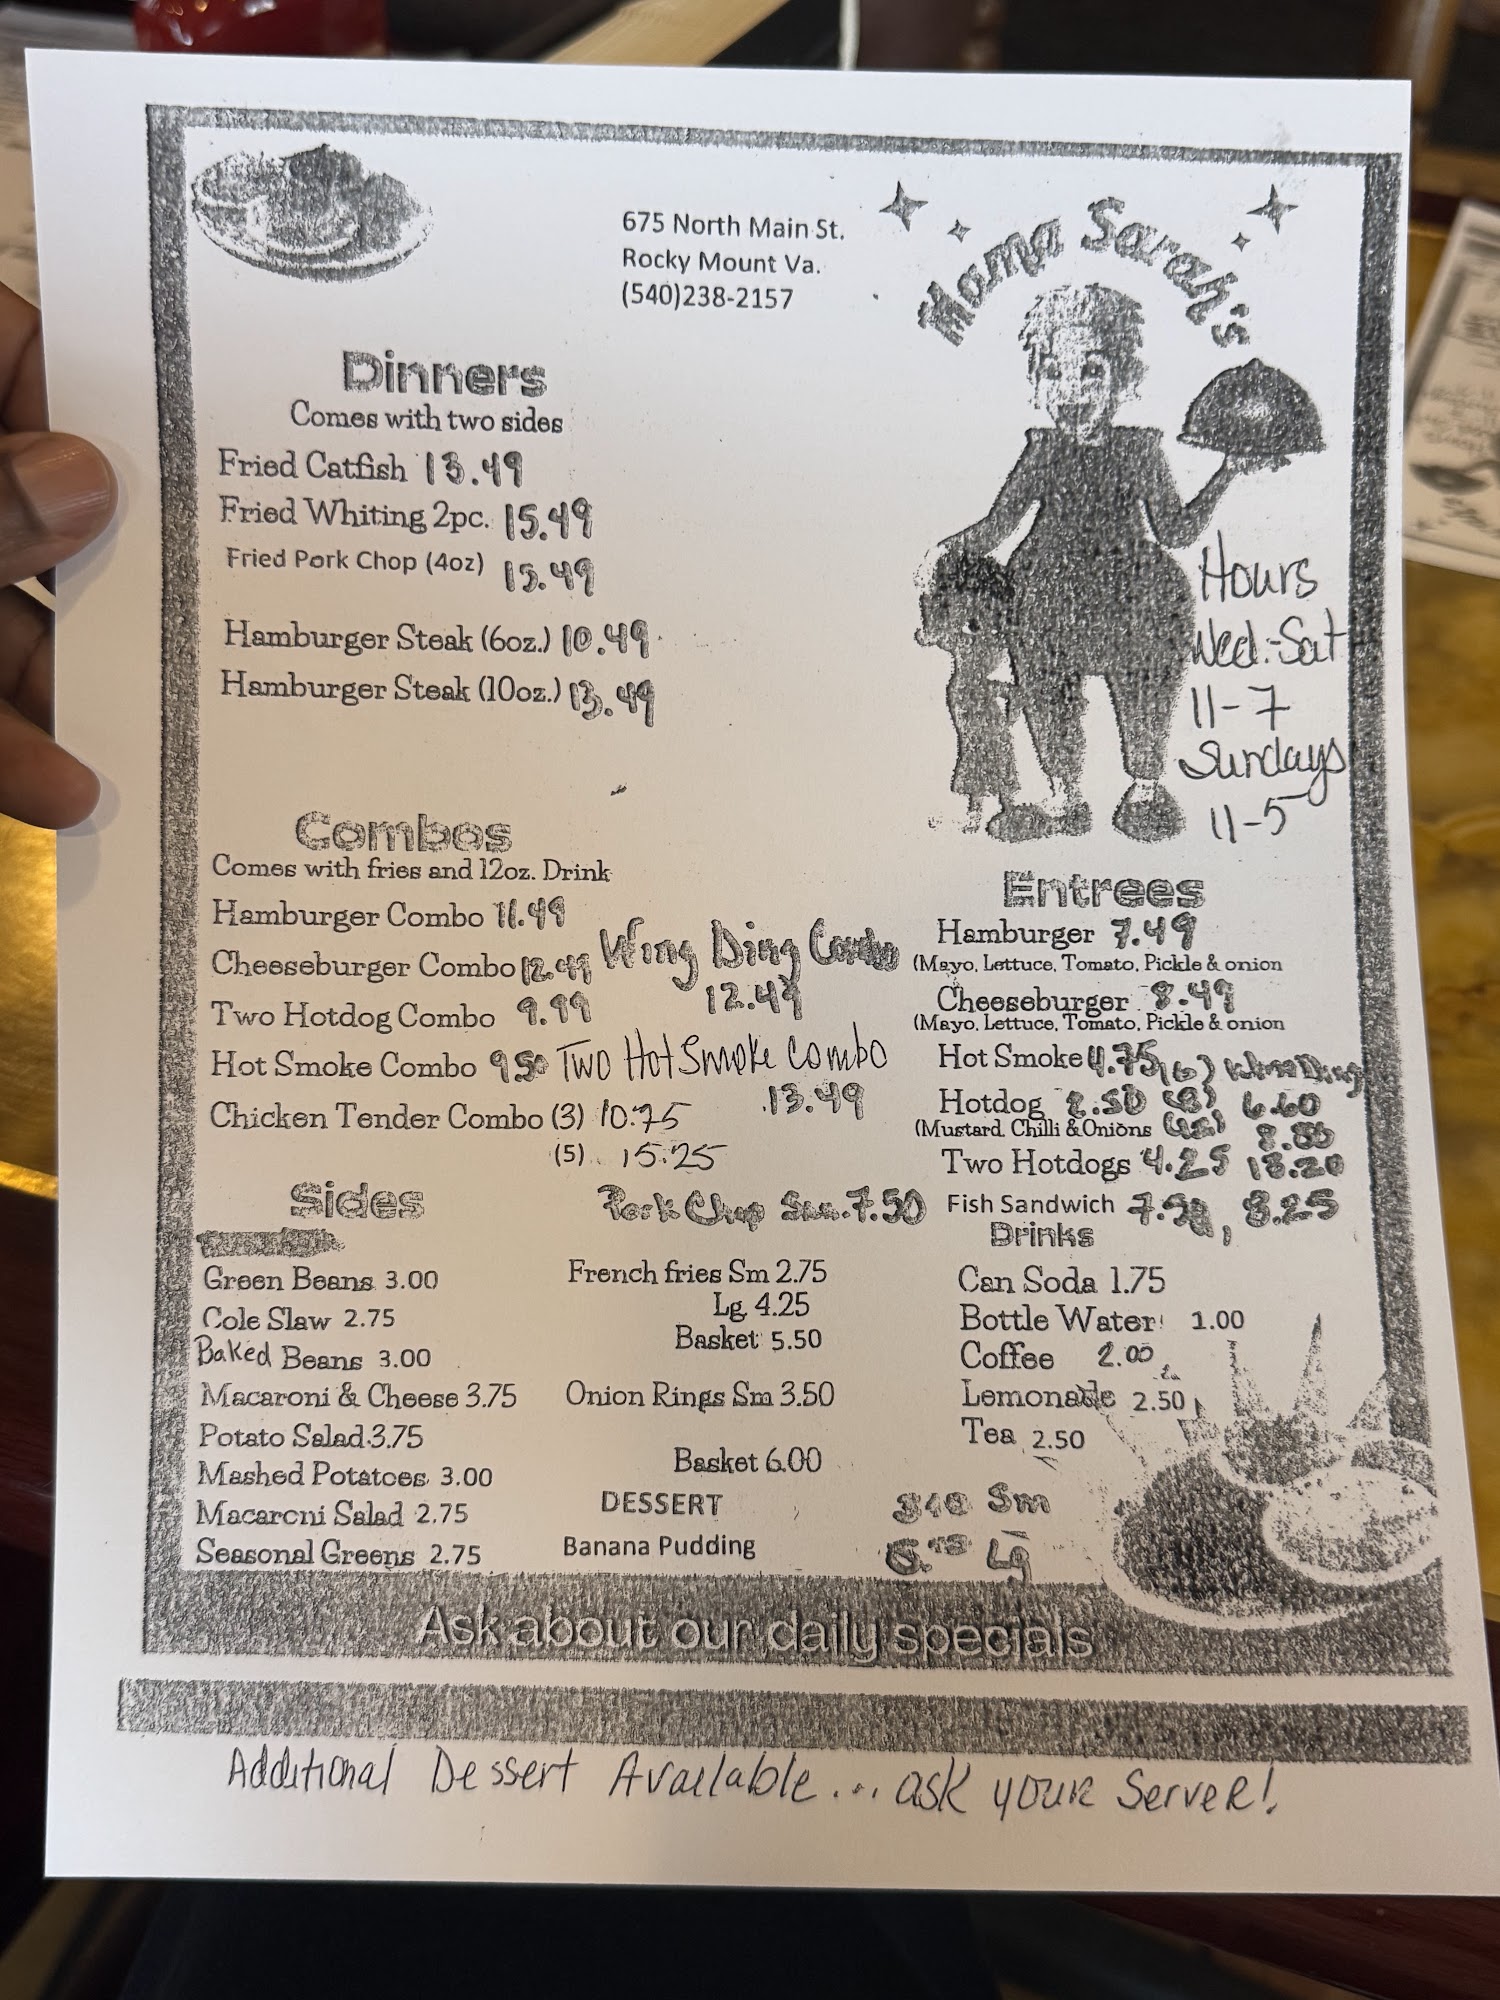 675 North Main St.
Rocky Mount Va.
(540)238-2157
Mama Sarah's
Hours
Wed.-Sat
11-7
Sundays
11-5
Dinners
Comes with two sides
Fried Catfish 13.49
Fried Whiting 2pc. 15.49
Fried Pork Chop (4oz)
Hamburger Steak (6oz.) 10.49
Hamburger Steak (10oz.) 13.49
Combos
Comes with fries and 12oz. Drink
Hamburger Combo 11.49
Cheeseburger Combo 12.49
Wing Ding Combo
12.49
Two Hotdog Combo 9.99
Hot Smoke Combo 9.50
Two Hot Smoke Combo
13.49
Chicken Tender Combo (3) 10.75
(5) 15.25
Entrees
Hamburger 7.49
(Mayo, Lettuce, Tomato, Pickle & onion
Cheeseburger 8.49
(Mayo, Lettuce, Tomato, Pickle & onion
Hot Smoke 4.75 (6) Wing Ding
Hotdog 2.50 6.60
(Mustard, Chilli & Onions
Two Hotdogs 4.25
Fish Sandwich 8.25
Pork Chop 7.50
Sides
Green Beans 3.00
Cole Slaw 2.75
Baked Beans 3.00
Macaroni & Cheese 3.75
Potato Salad 3.75
Mashed Potatoes 3.00
Macaroni Salad 2.75
Seasonal Greens 2.75
French fries Sm 2.75
Lg. 4.25
Basket 5.50
Onion Rings Sm 3.50
Basket 6.00
DESSERT
Banana Pudding
Sm
Lg
Drinks
Can Soda 1.75
Bottle Water 1.00
Coffee 2.00
Lemonade 2.50
Tea 2.50
Ask about our daily specials
Additional Dessert Available... ask your Server!